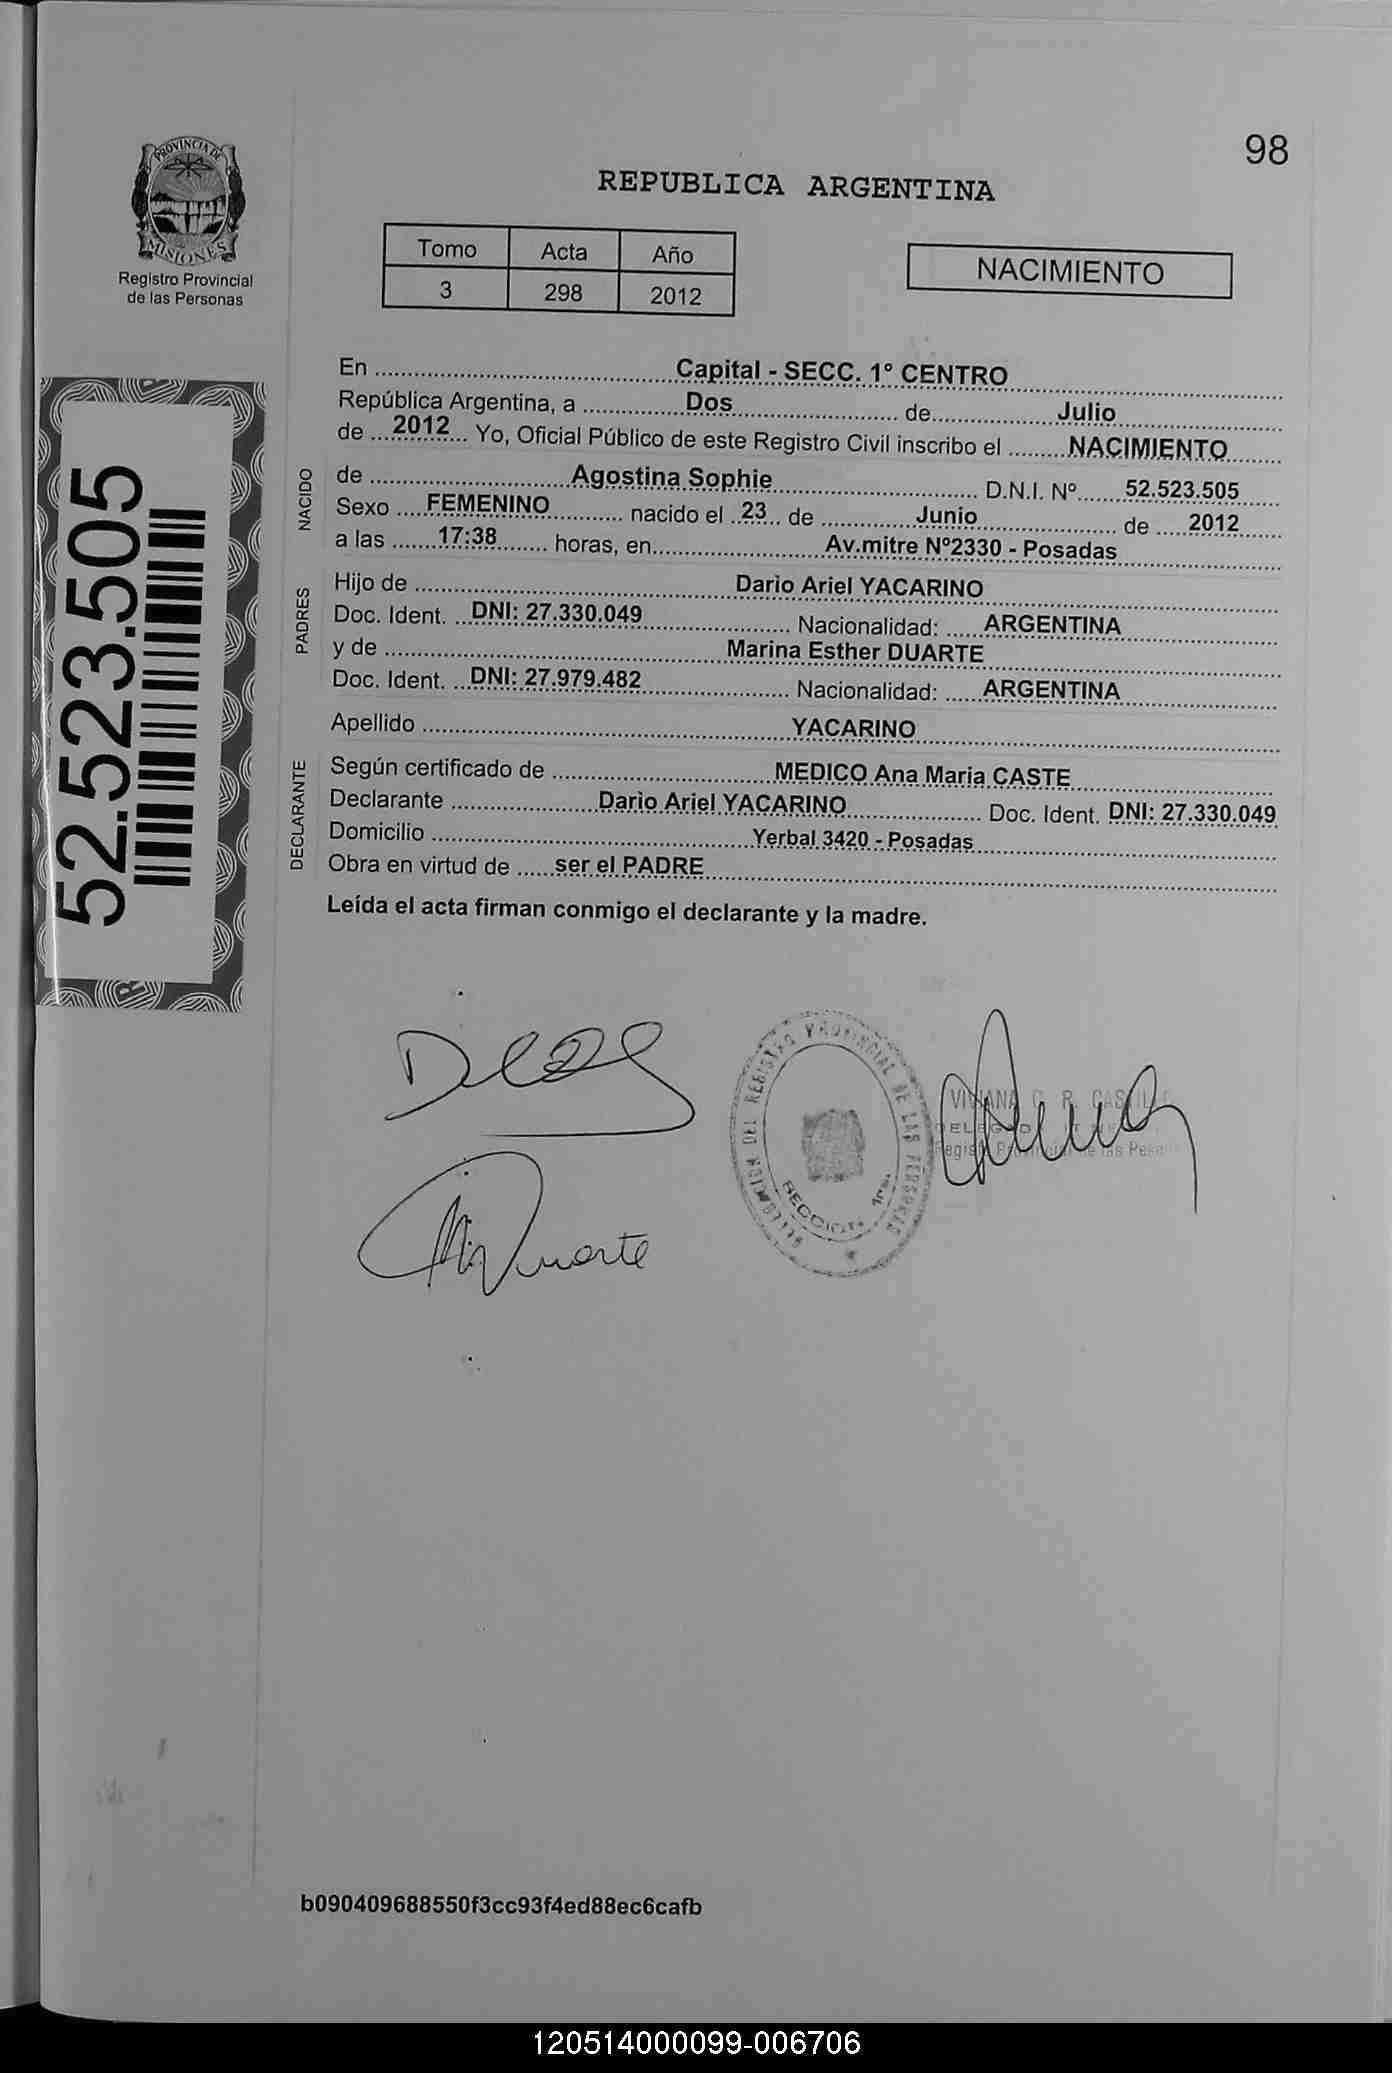 98
PROVINCIA DE
MISIONES
Registro Provincial
de las Personas
REPUBLICA ARGENTINA
Tomo Acta Año
3 298 2012
NACIMIENTO
52.523.505
En Capital - SECC. 1° CENTRO
República Argentina, a Dos de Julio
de 2012 Yo, Oficial Público de este Registro Civil inscribo el NACIMIENTO
NACIDO
de Agostina Sophie D.N.I. Nº 52.523.505
Sexo FEMENINO nacido el 23 de Junio de 2012
a las 17:38 horas, en Av.mitre Nº2330 - Posadas
PADRES
Hijo de Dario Ariel YACARINO
Doc. Ident. DNI: 27.330.049 Nacionalidad: ARGENTINA
y de Marina Esther DUARTE
Doc. Ident. DNI: 27.979.482 Nacionalidad: ARGENTINA
Apellido YACARINO
DECLARANTE
Según certificado de MEDICO Ana Maria CASTE
Declarante Dario Ariel YACARINO Doc. Ident. DNI: 27.330.049
Domicilio Yerbal 3420 - Posadas
Obra en virtud de ser el PADRE
Leída el acta firman conmigo el declarante y la madre.
DEL REGISTRO PROVINCIAL DE LAS PERSONAS
SECCION 1ra.
VIVIANA G. R.
Duarte
b090409688550f3cc93f4ed88ec6cafb
120514000099-006706